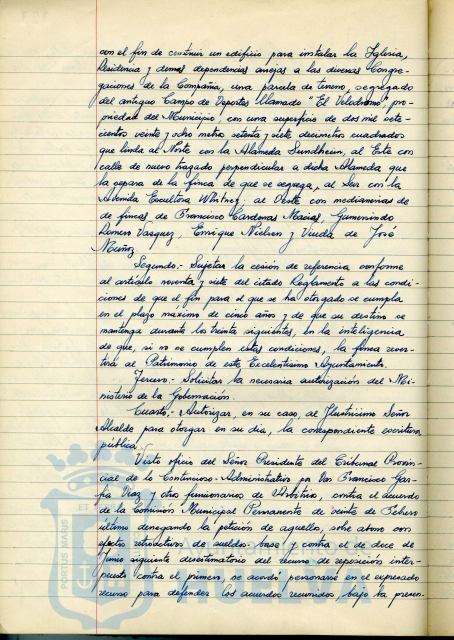 con el fin de construir un edificio para instalar la Iglesia,
Residencia y demas dependencias anejas a las diversas Congre-
gaciones de la Compañia, una parcela de terreno, segregada
del antiguo Campo de Deportes llamado "El Velodromo" pro-
piedad del Municipio, con una superficie de dos mil sete-
cientos veinte y ocho metros setenta y siete decimetros cuadrados
que linda al Norte con la Alameda Sundheim, al Este con
calle de nuevo trazado perpendicular a dicha Alameda que
la separa de la finca de que se segrega, al Sur con la
Avenida Escultora Whitney; al Oeste con medianerias de
de fincas de Francisco Cárdenas Macias, Gumersindo
Romero Vazquez, Enrique Nielsen y Viuda de José
Muñoz.
Segundo.- Sujetar la cesión de referencia conforme
al artículo noventa y siete del citado Reglamento a las condi-
ciones de que el fin para el que se ha otorgado se cumpla
en el plazo máximo de cinco años y de que su destino se
mantenga durante los treinta siguientes, en la inteligencia
de que, si no se cumplen estas condiciones, la finca rever-
tirá al Patrimonio de este Excelentisimo Ayuntamiento.
Tercero.- Solicitar la necesaria autorización del Mi-
nisterio de la Gobernación.
Cuarto.- Autorizar, en su caso, al Ilustrisimo Señor
Alcalde para otorgar en su dia, la correspondiente escritura
pública.
Visto oficio del Señor Presidente del Tribunal Provin-
cial de lo Contencioso-Administrativo por Don Francisco Gar-
cia Vraz y otros funcionarios de Arbitrios, contra el acuerdo
de la Comisión Municipal Permanente de veinte de Febrero
último denegando la petición de aquellos, sobre abono con
efectos retroactivos de sueldos-base y contra el de doce de
Junio siguiente desestimatorio del recurso de reposición inter-
puesto contra el primero, se acordó personarse en el expresado
recurso para defender los acuerdos recurridos, bajo la presen-
PORTUS MARIS
ET